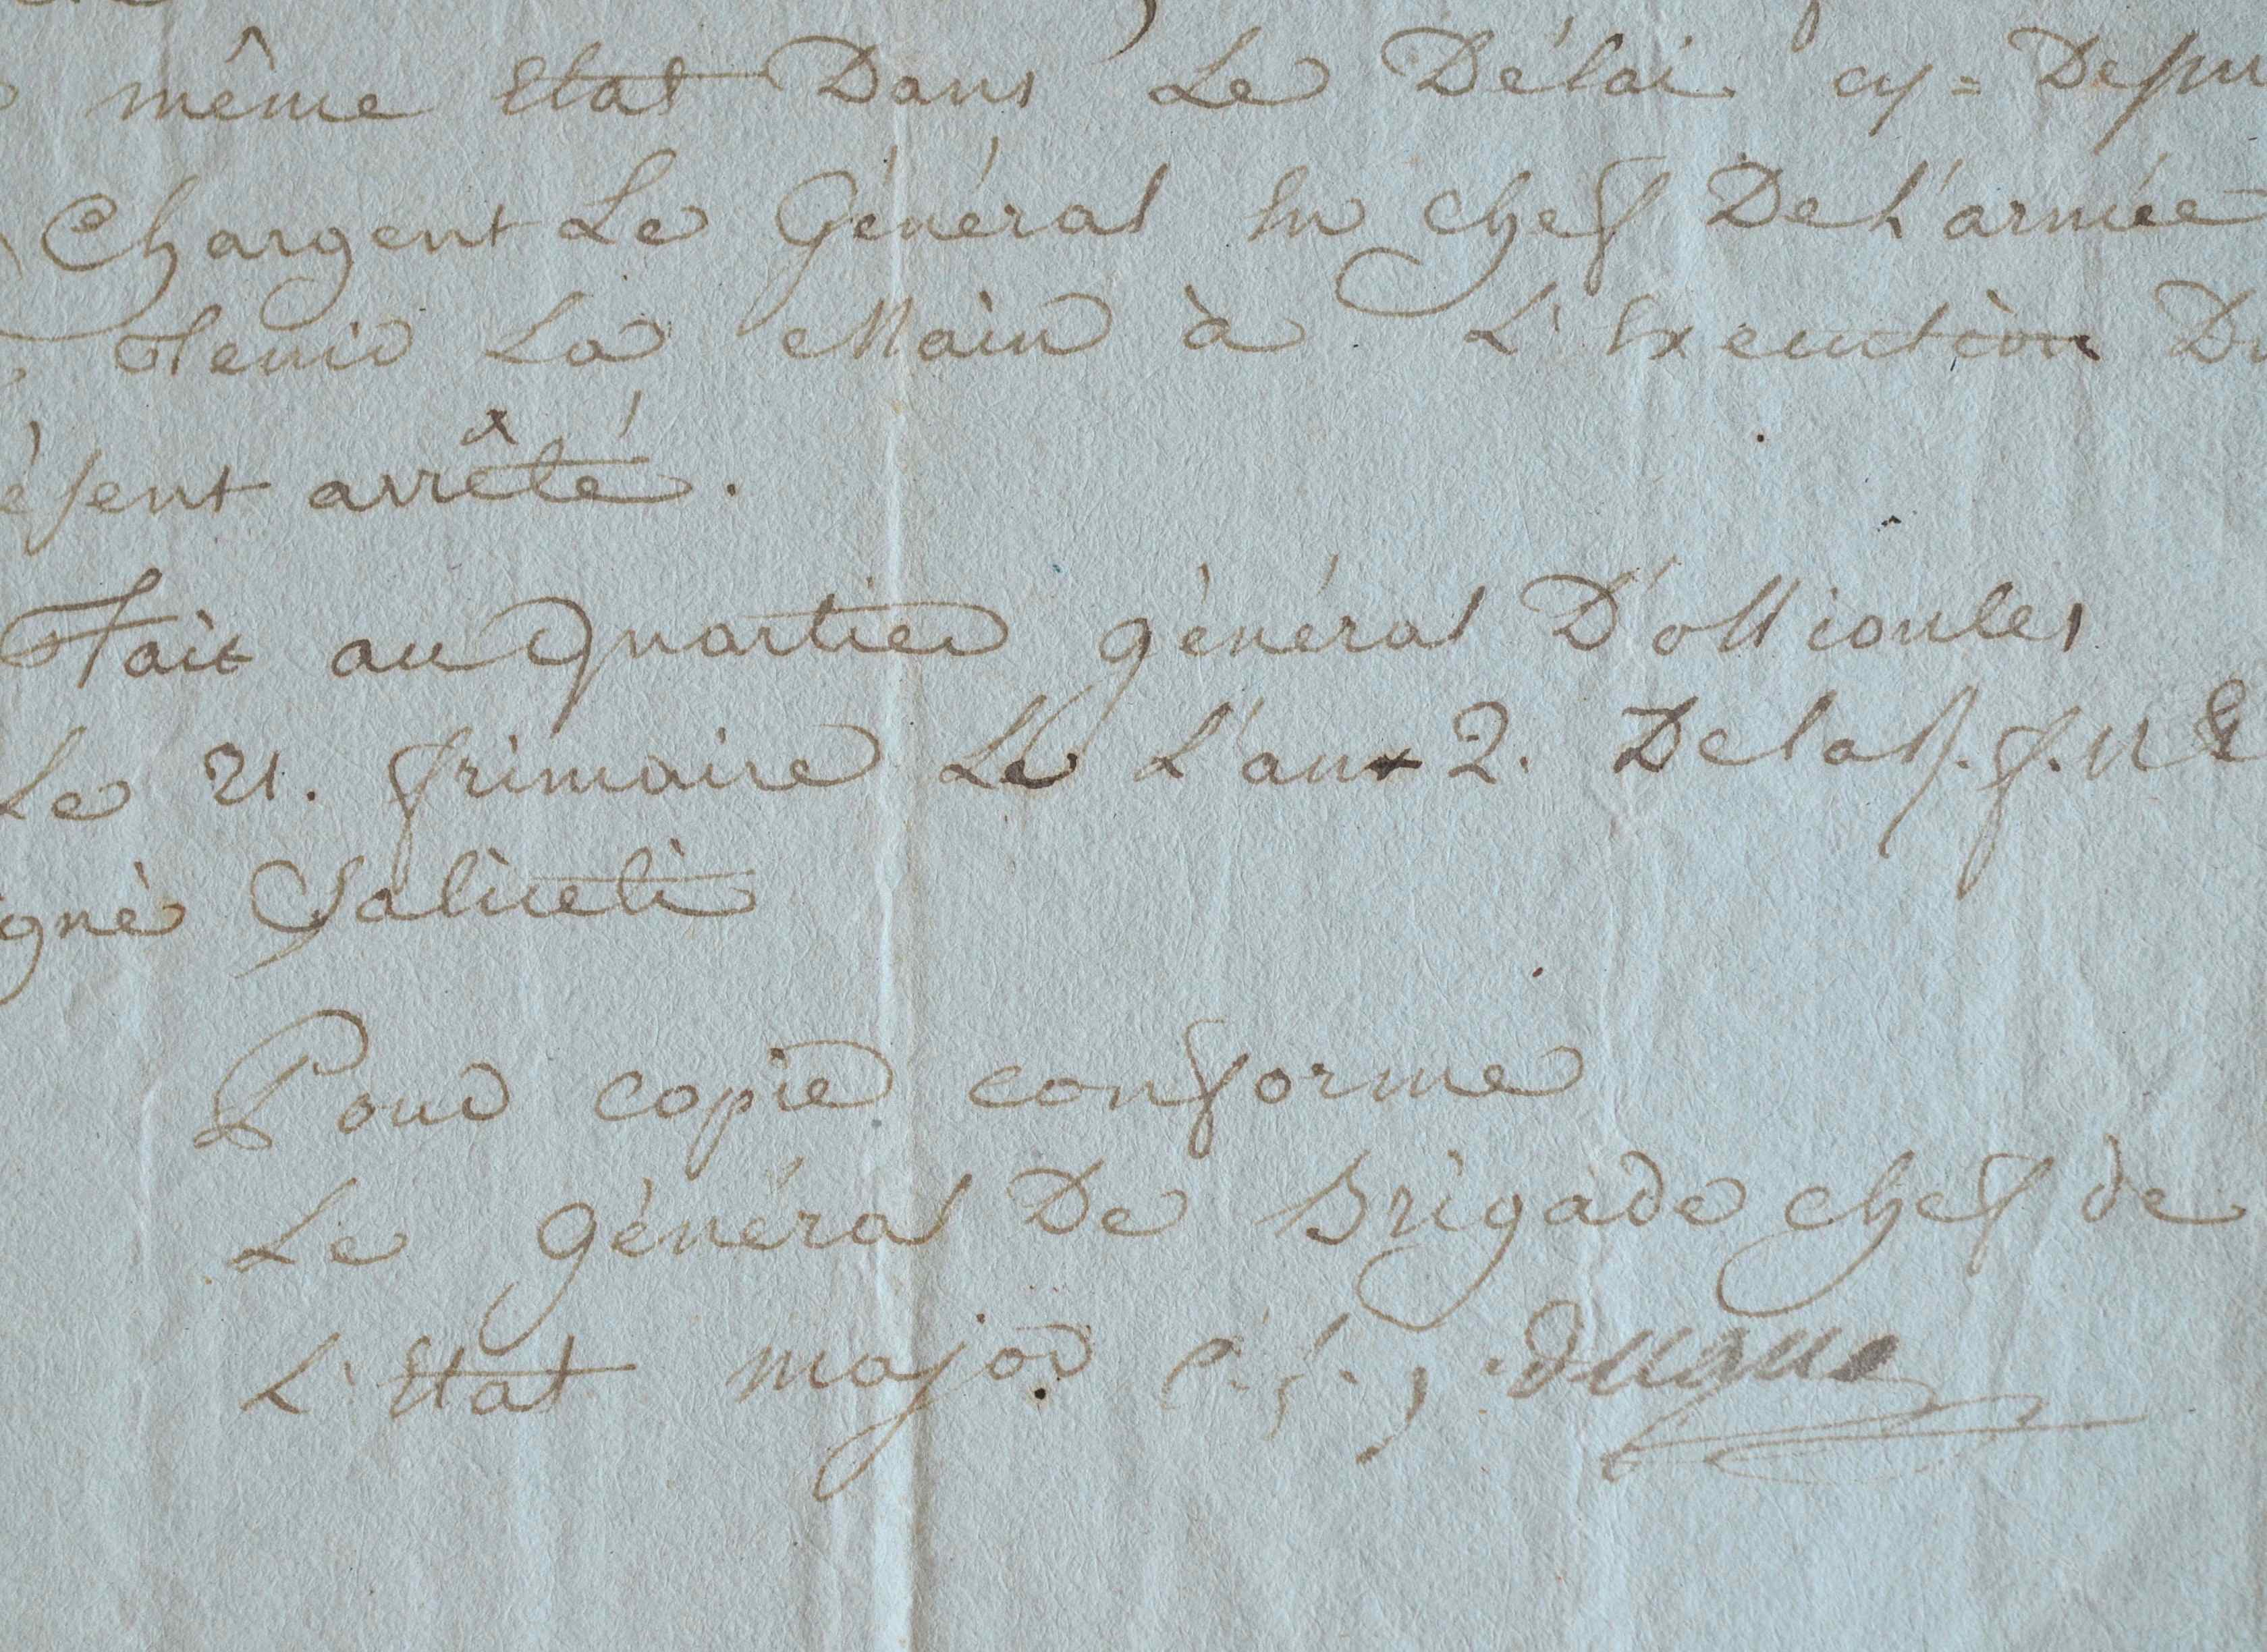 même Etat Dans Le Délai cy=Depu
Chargent Le Général En Chef De L'armée
Tenir La Main à L'Execution Du
ésent arrêté.
Fait au Quartier général D'ollioules
Le 21. frimaire L'an 2. De la R. f. u &
gné Saliceti
Pour copie conforme
Le général De Brigade chef de
L'Etat major P. J., Dugua